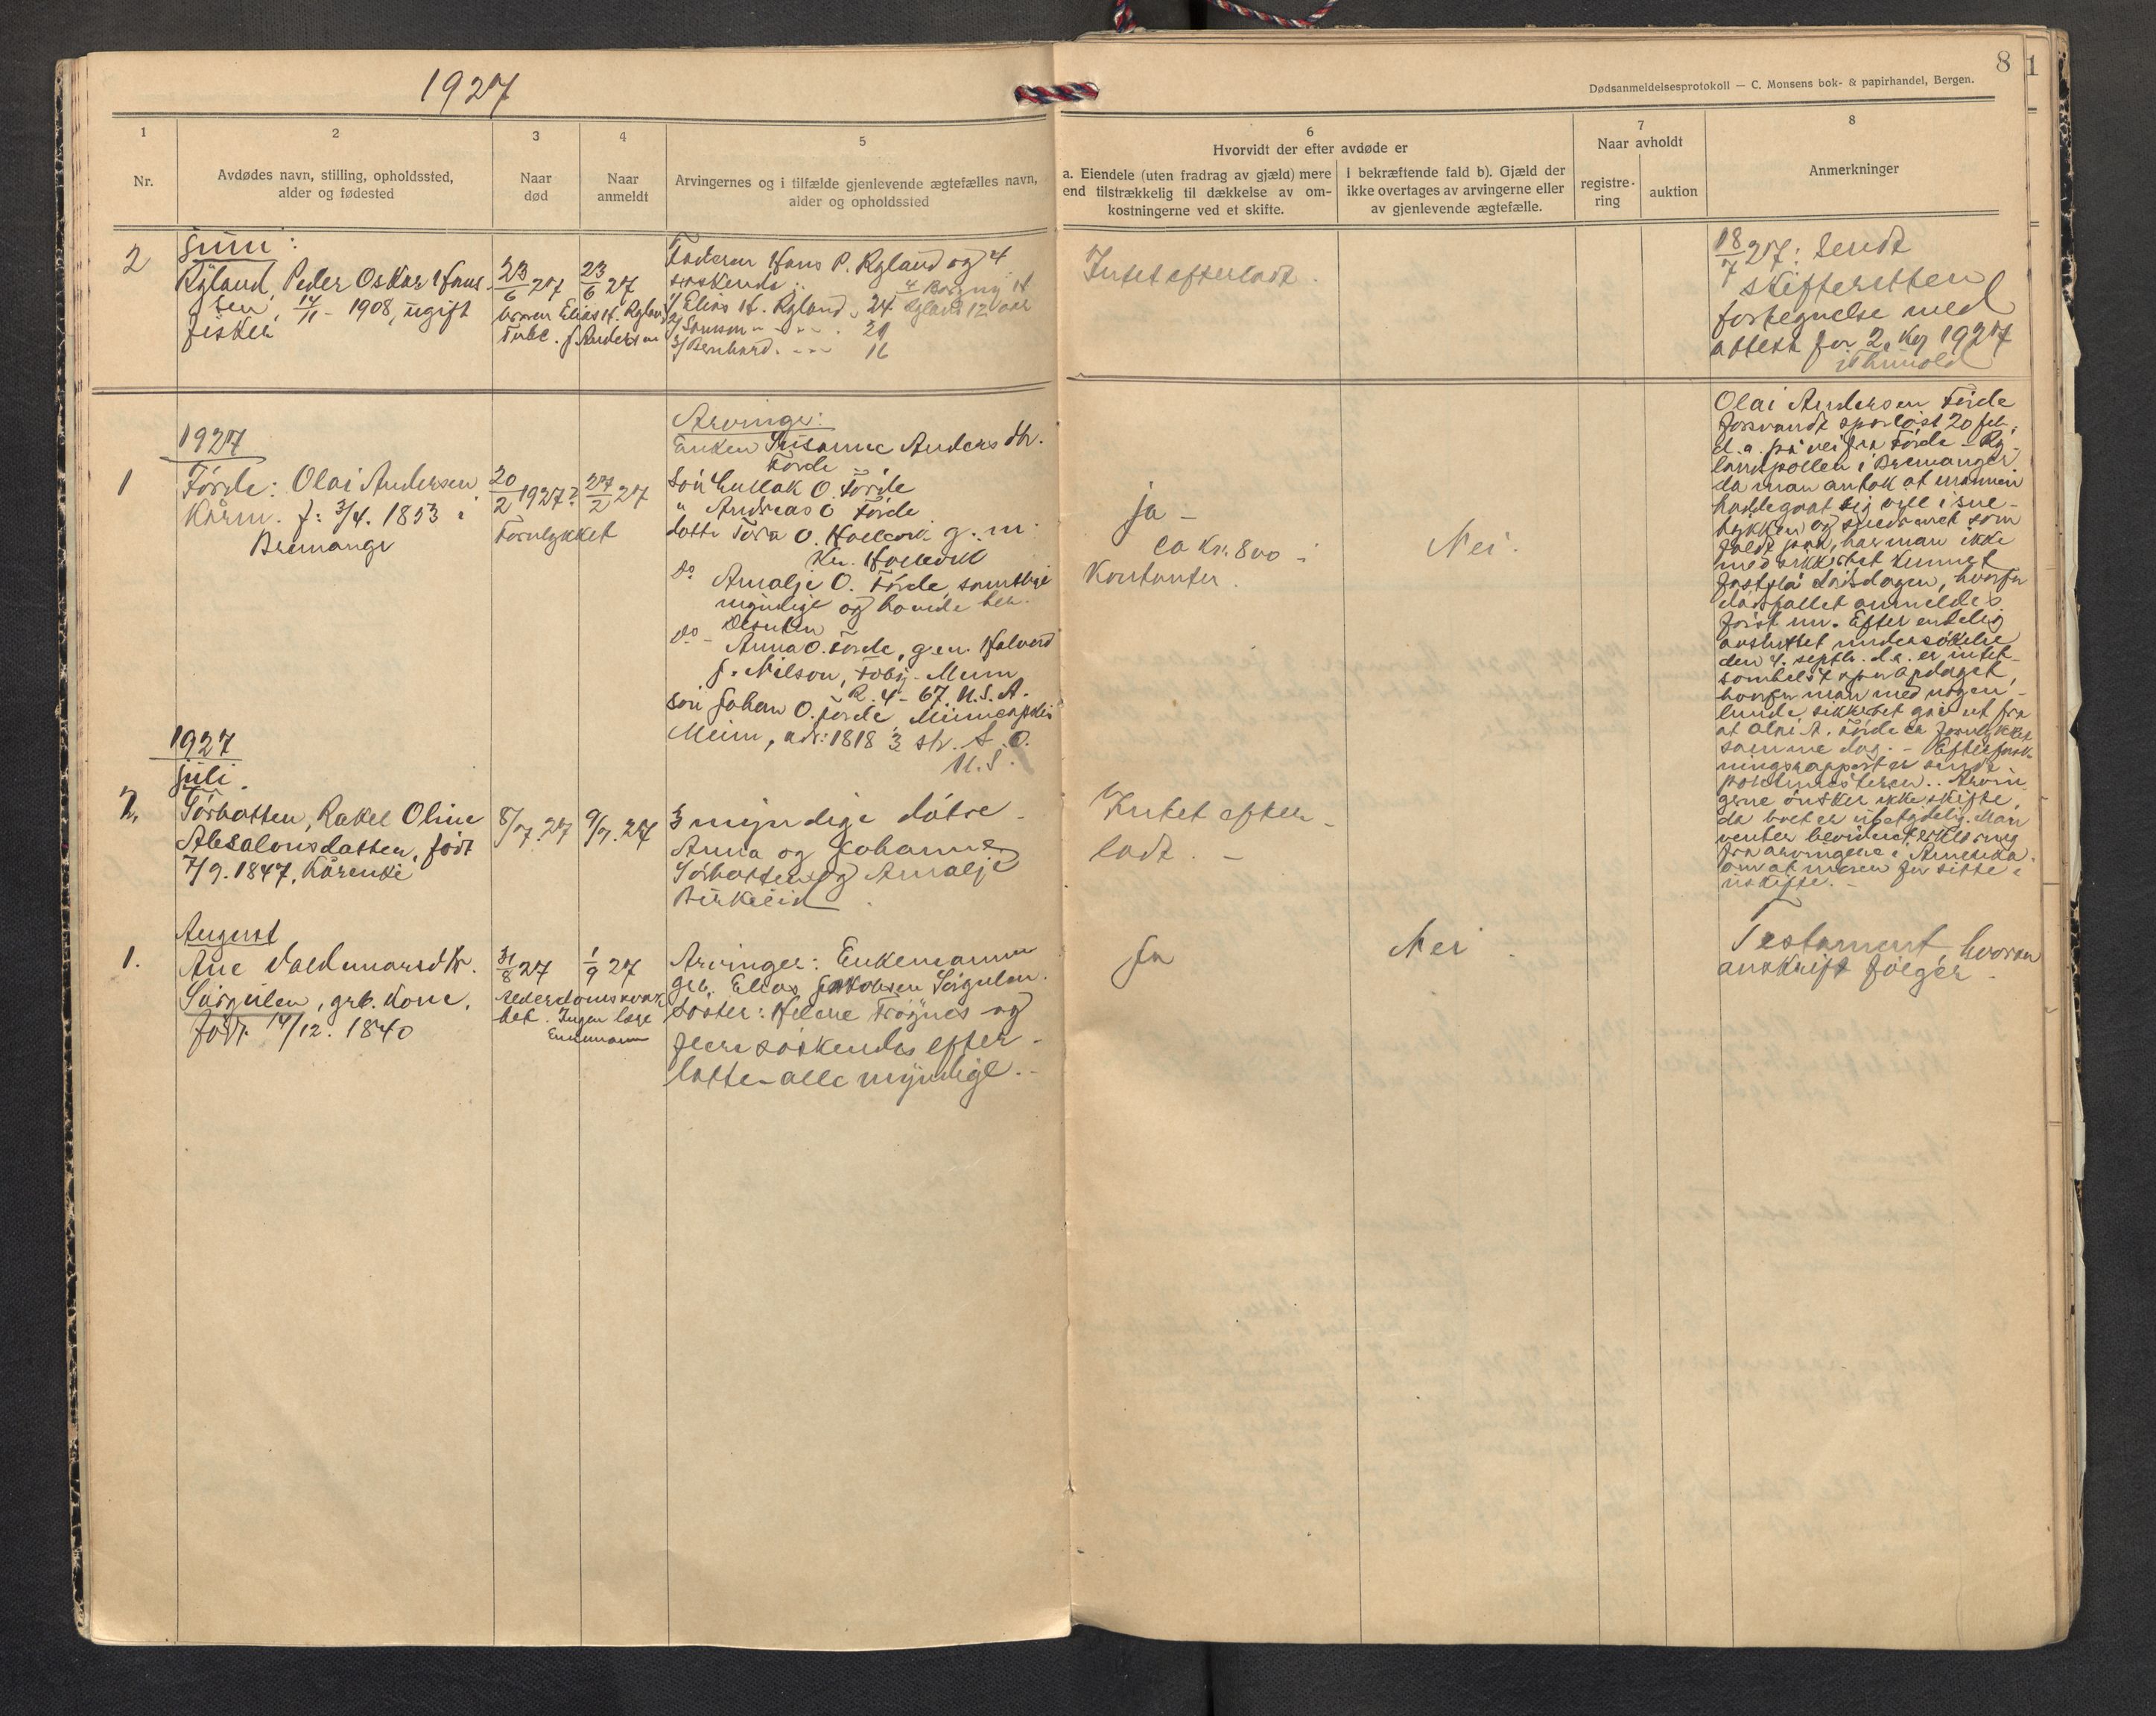 1927
8
1
Dødsanmeldelsesprotokoll — C. Monsens bok- & papirhandel, Bergen.
1
Nr.
2
Avdødes navn, stilling, opholdssted,
alder og fødested
3
Naar
død
4
Naar
anmeldt
5
Arvingernes og i tilfælde gjenlevende ægtefælles navn,
alder og opholdssted
6
Hvorvidt der efter avdøde er
a. Eiendele (uten fradrag av gjæld) mere
end tilstrækkelig til dækkelse av om-
kostningerne ved et skifte.
I bekræftende fald b). Gjæld der
ikke overtages av arvingerne eller
av gjenlevende ægtefælle.
7
Naar avholdt
registre-
ring
auktion
8
Anmerkninger
juni:
2
Rÿland, Peder Oskar Hans-
sen, 14/11 - 1908, ugift
fisker
23/6 27
23/6 27
broren Elias H. Ryland
Tube. J. Andersen
Faderen Hans P. Ryland og 4
søskende:
1/ Elias H. Ryland 24
2/ 21
3/ Bernhard. 16
4 Borgny H
Ryland 12 aar
Intet efterladt.
18/7 27: Sendt
skifteretten
fortegnelse med
attest for 2. kv 1927
1927
1
Förde: Olai Andersen
Kårm. f: 3/4. 1853 i
Bremanger
20/2 1927?
27/2 27
Forulykket
Arvinger:
Enken Susanne Anders dtr.
Förde
Sön Enllak O. Förde
" Andreas O Förde
datter Tora O. g. m.
Kr.
do Amalje O. Förde, samtlige
myndige og boende her.
Desuten
do - Anna O. Förde, gm. Halvord
J. Nilson, - Minn
R. 4 - 67. U.S.A.
sön Johan O. Förde, Minneapolis
Minn, adr: 1818 3 str. S. O.
U.S.
ja -
ca kr. 800 i
Kontanter.
Nei.
Olai Andersen Förde
forsvandt sporlöst 20 feb.
d.a. på vei fra Förde - Ry-
landspollen i Bremanger
da man antok at mannen
hadde gaat sig vill i sne-
tykken og snedrevet som
faldt paa, har man ikke
med sikkerhet kunnet
fastslå dödsdagen, hvorfor
dödsfallet anmeldes
först nu. Efter endelig
avsluttet undersökelse
den 4. septbr. d.a. er intet-
somhelst spor opdaget,
hvorfor man med nogen-
lunde sikkerhet går ut fra
at Olai A. Förde er forulykket
samme dag. - Efterforsk-
ningsrapport er sendt
politimesteren. Arvin-
gerne önsker ikke skifte,
da boet er ubetydelig. Man
venter bevidnet erklæring
fra arvingene i Amerika
om at moren får sitte i
uskifte. -
1927
juli.
2,
Sörbotten, Rakel Oline
Absalonsdatter, född
7/9. 1847, kårenke
8/7. 27
9/7. 27
3 myndige dötre -
Anna og Johanne
Sörbotten og Amalje
Birkeid.
Intet efter-
ladt. -
August
1.
Ane Valdemarsdtr.
Sörgulen, grb. kone,
Född. 14/12. 1840
31/8 27
1/9 27
Alderdomssvak-
het. Ingen læge
Enkemann
Arvinger: Enkemannen
grb. Elias Jakobsen Sörgulen.
Söster: Helene Fröynes og
flere söskendes efter-
latte - alle myndige. -
Ja
Nei.
Testament, hvorav
avskrift fölger.